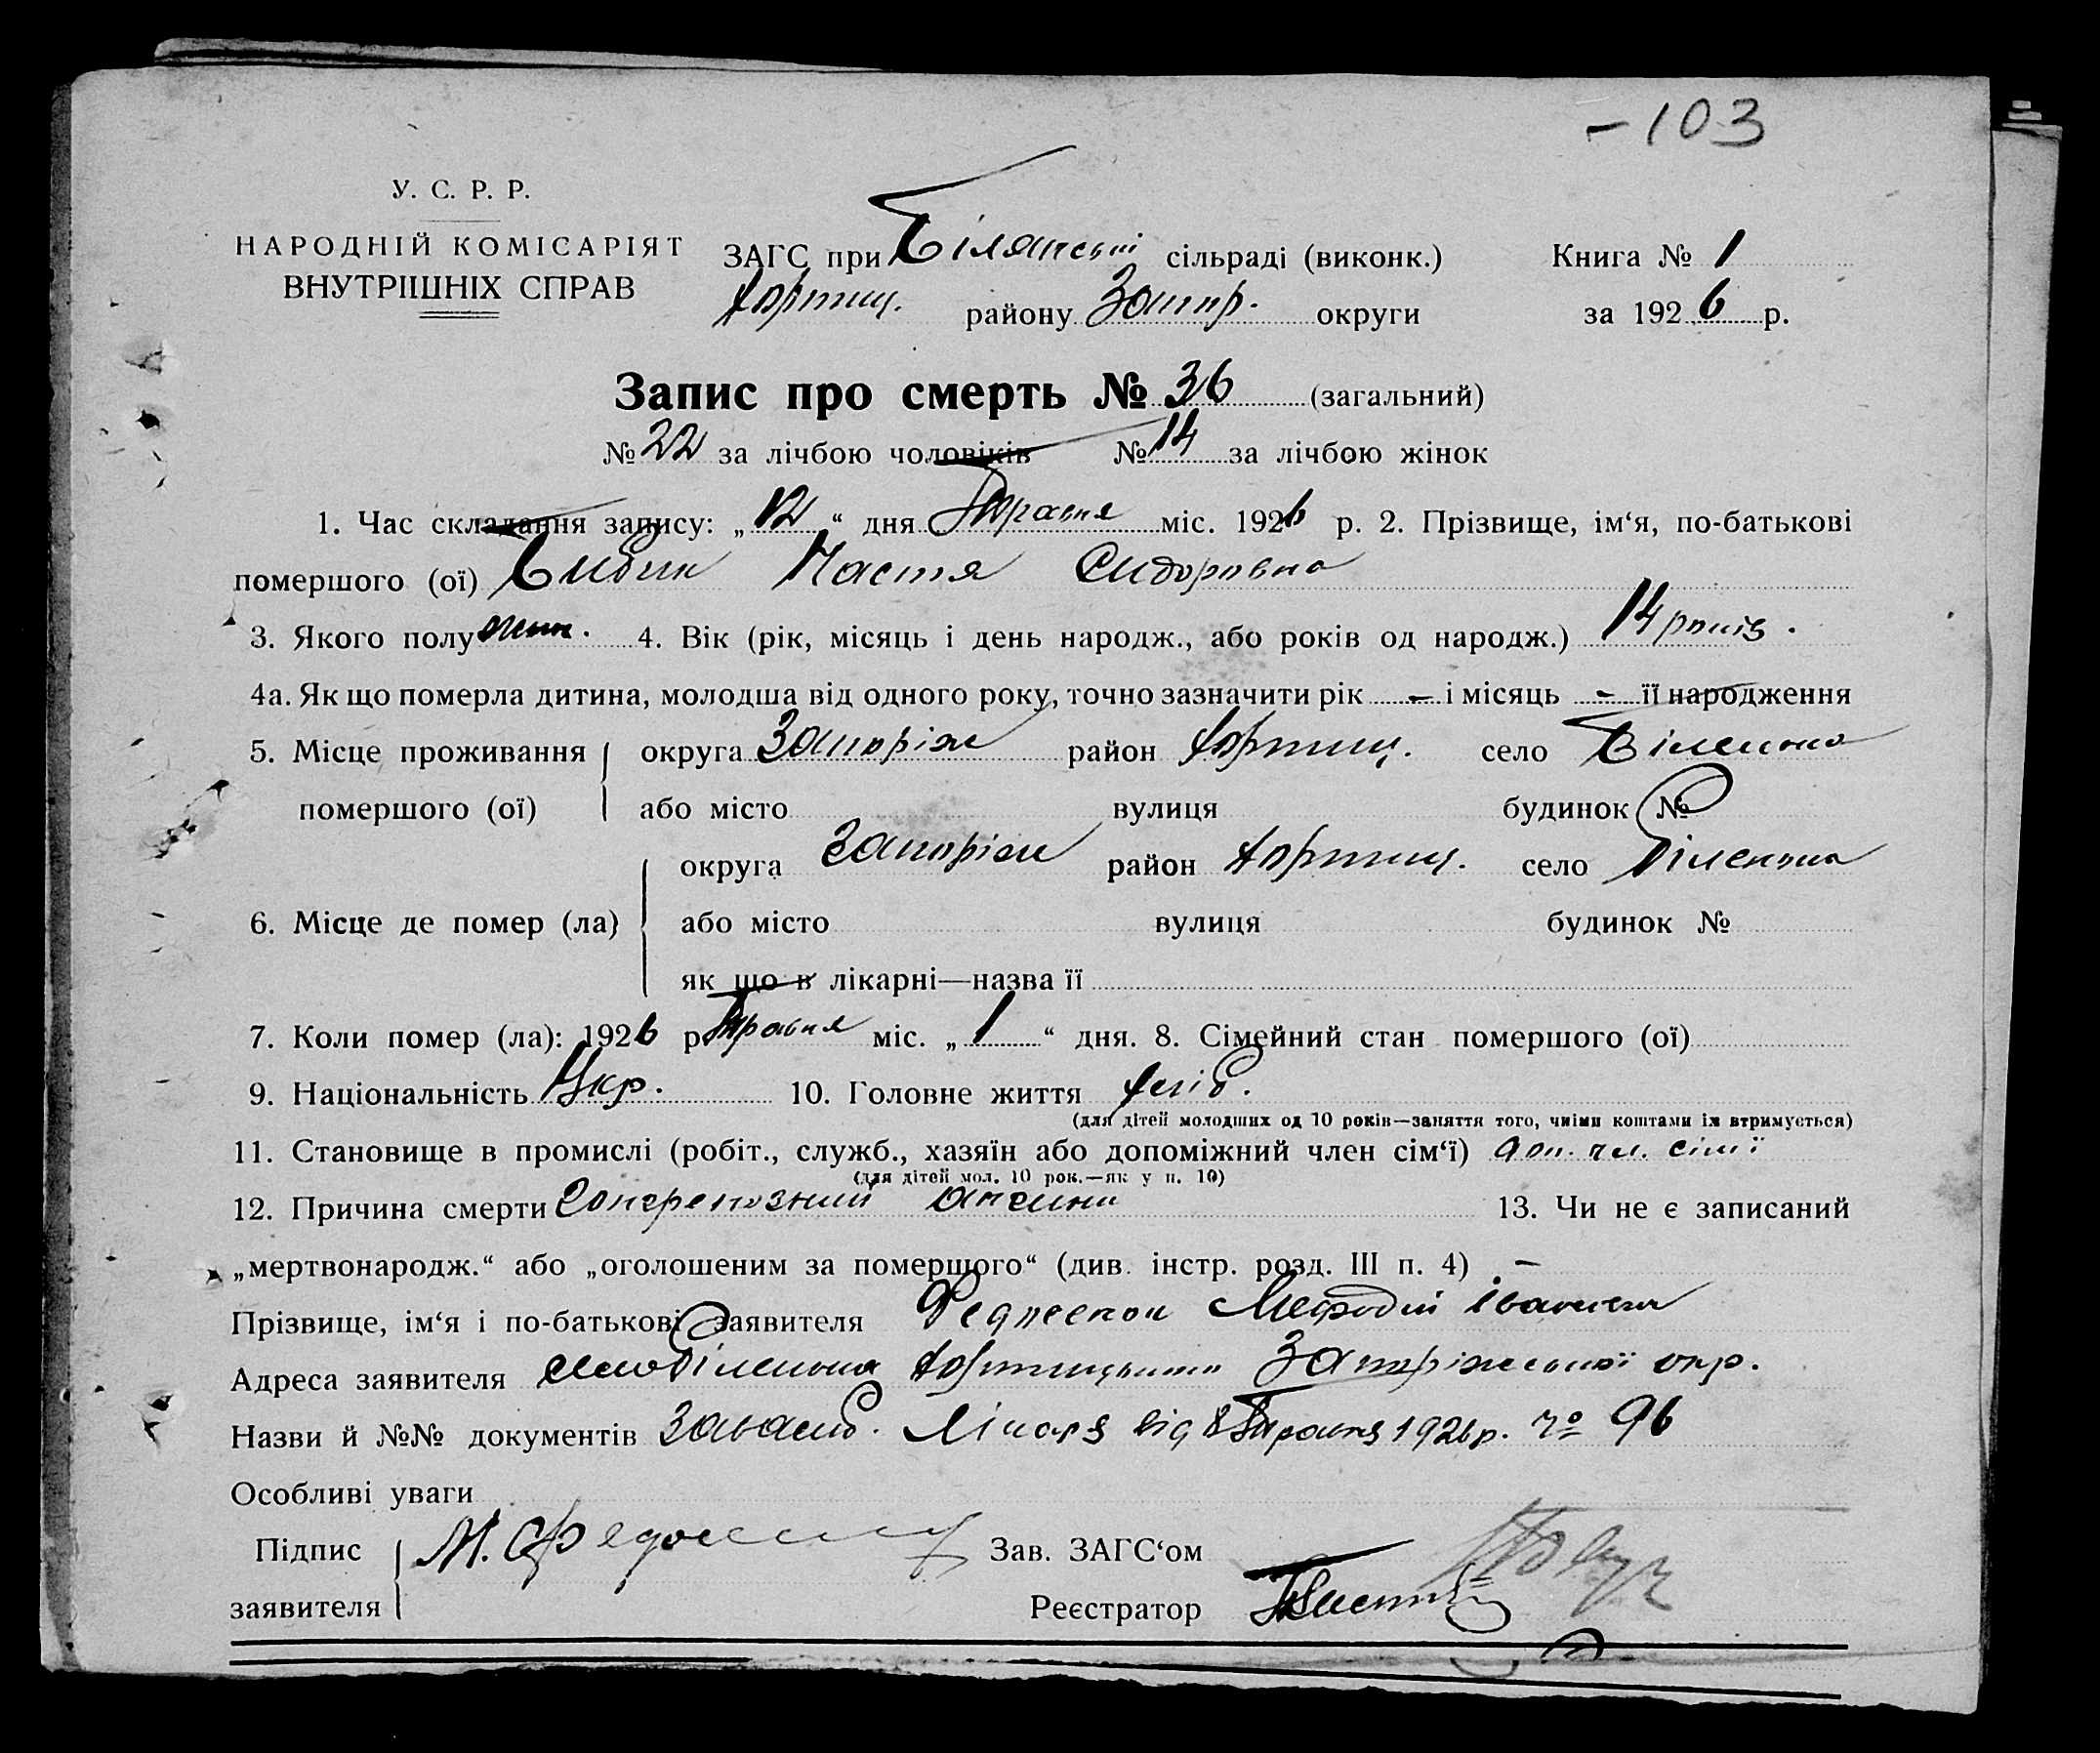 -103
У. С. Р. Р.
НАРОДНІЙ КОМІСАРІЯТ
ВНУТРІШНІХ СПРАВ
ЗАГС при Білянські сільраді (виконк.)
Хортиц. району Запор. округи
Книга № 1
за 1926 р.
Запис про смерть № 36 (загальний)
№ 22 за лічбою чоловіків № 14 за лічбою жінок
1. Час складання запису: „12“ дня Травня міс. 1926 р. 2. Прізвище, ім‘я, по-батькові
помершого (ої) Бибик Настя Сидоровна
3. Якого полу жін. 4. Вік (рік, місяць і день народж., або років од народж.) 14 років.
4а. Як що померла дитина, молодша від одного року, точно зазначити рік - і місяць - її народження
5. Місце проживання округа Запоріж район Хортиц. село Біленька
помершого (ої) або місто вулиця будинок №
округа Запоріж район Хортиц. село Біленька
6. Місце де помер (ла) або місто вулиця будинок №
як що в лікарні—назва її
7. Коли помер (ла): 1926 р Травня міс. „1“ дня. 8. Сімейний стан помершого (ої)
9. Національність Укр. 10. Головне життя хліб.
(для дітей молодших од 10 років—заняття того, чиїми коштами їх втримується)
11. Становище в промислі (робіт., служб., хазяїн або допоміжний член сім‘ї) доп. чл. сімї
(для дітей мол. 10 рок.—як у п. 10)
12. Причина смерти ангина 13. Чи не є записаний
„мертвонародж.“ або „оголошеним за померщого“ (див. інстр. розд. III п. 4) -
Прізвище, ім‘я і по-батькові заявителя Мефодій Іванович
Адреса заявителя село Біленька Хортицького Запоріжської окр.
Назви й №№ документів Лікаря від 8 Травня 1926 р. № 96
Особливі уваги
Підпис М.
заявителя
Зав. ЗАГС‘ом
Реєстратор